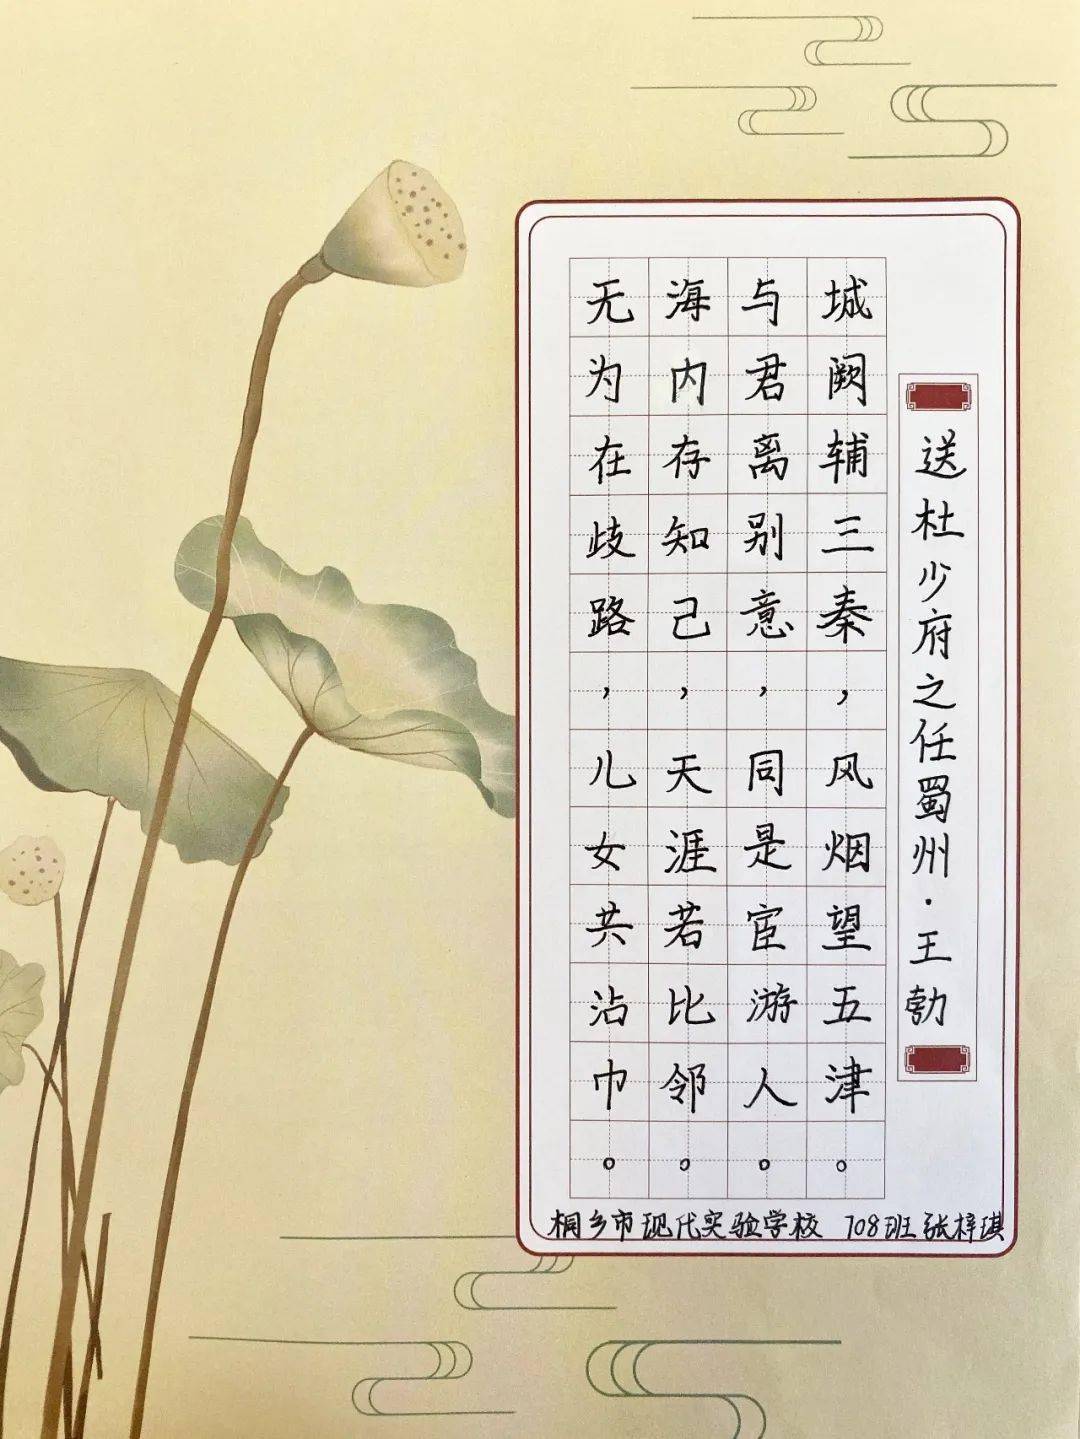 送杜少府之任蜀州·王勃
城阙辅三秦，风烟望五津。
与君离别意，同是宦游人。
海内存知己，天涯若比邻。
无为在歧路，儿女共沾巾。
桐乡市现代实验学校 708班 张梓琪